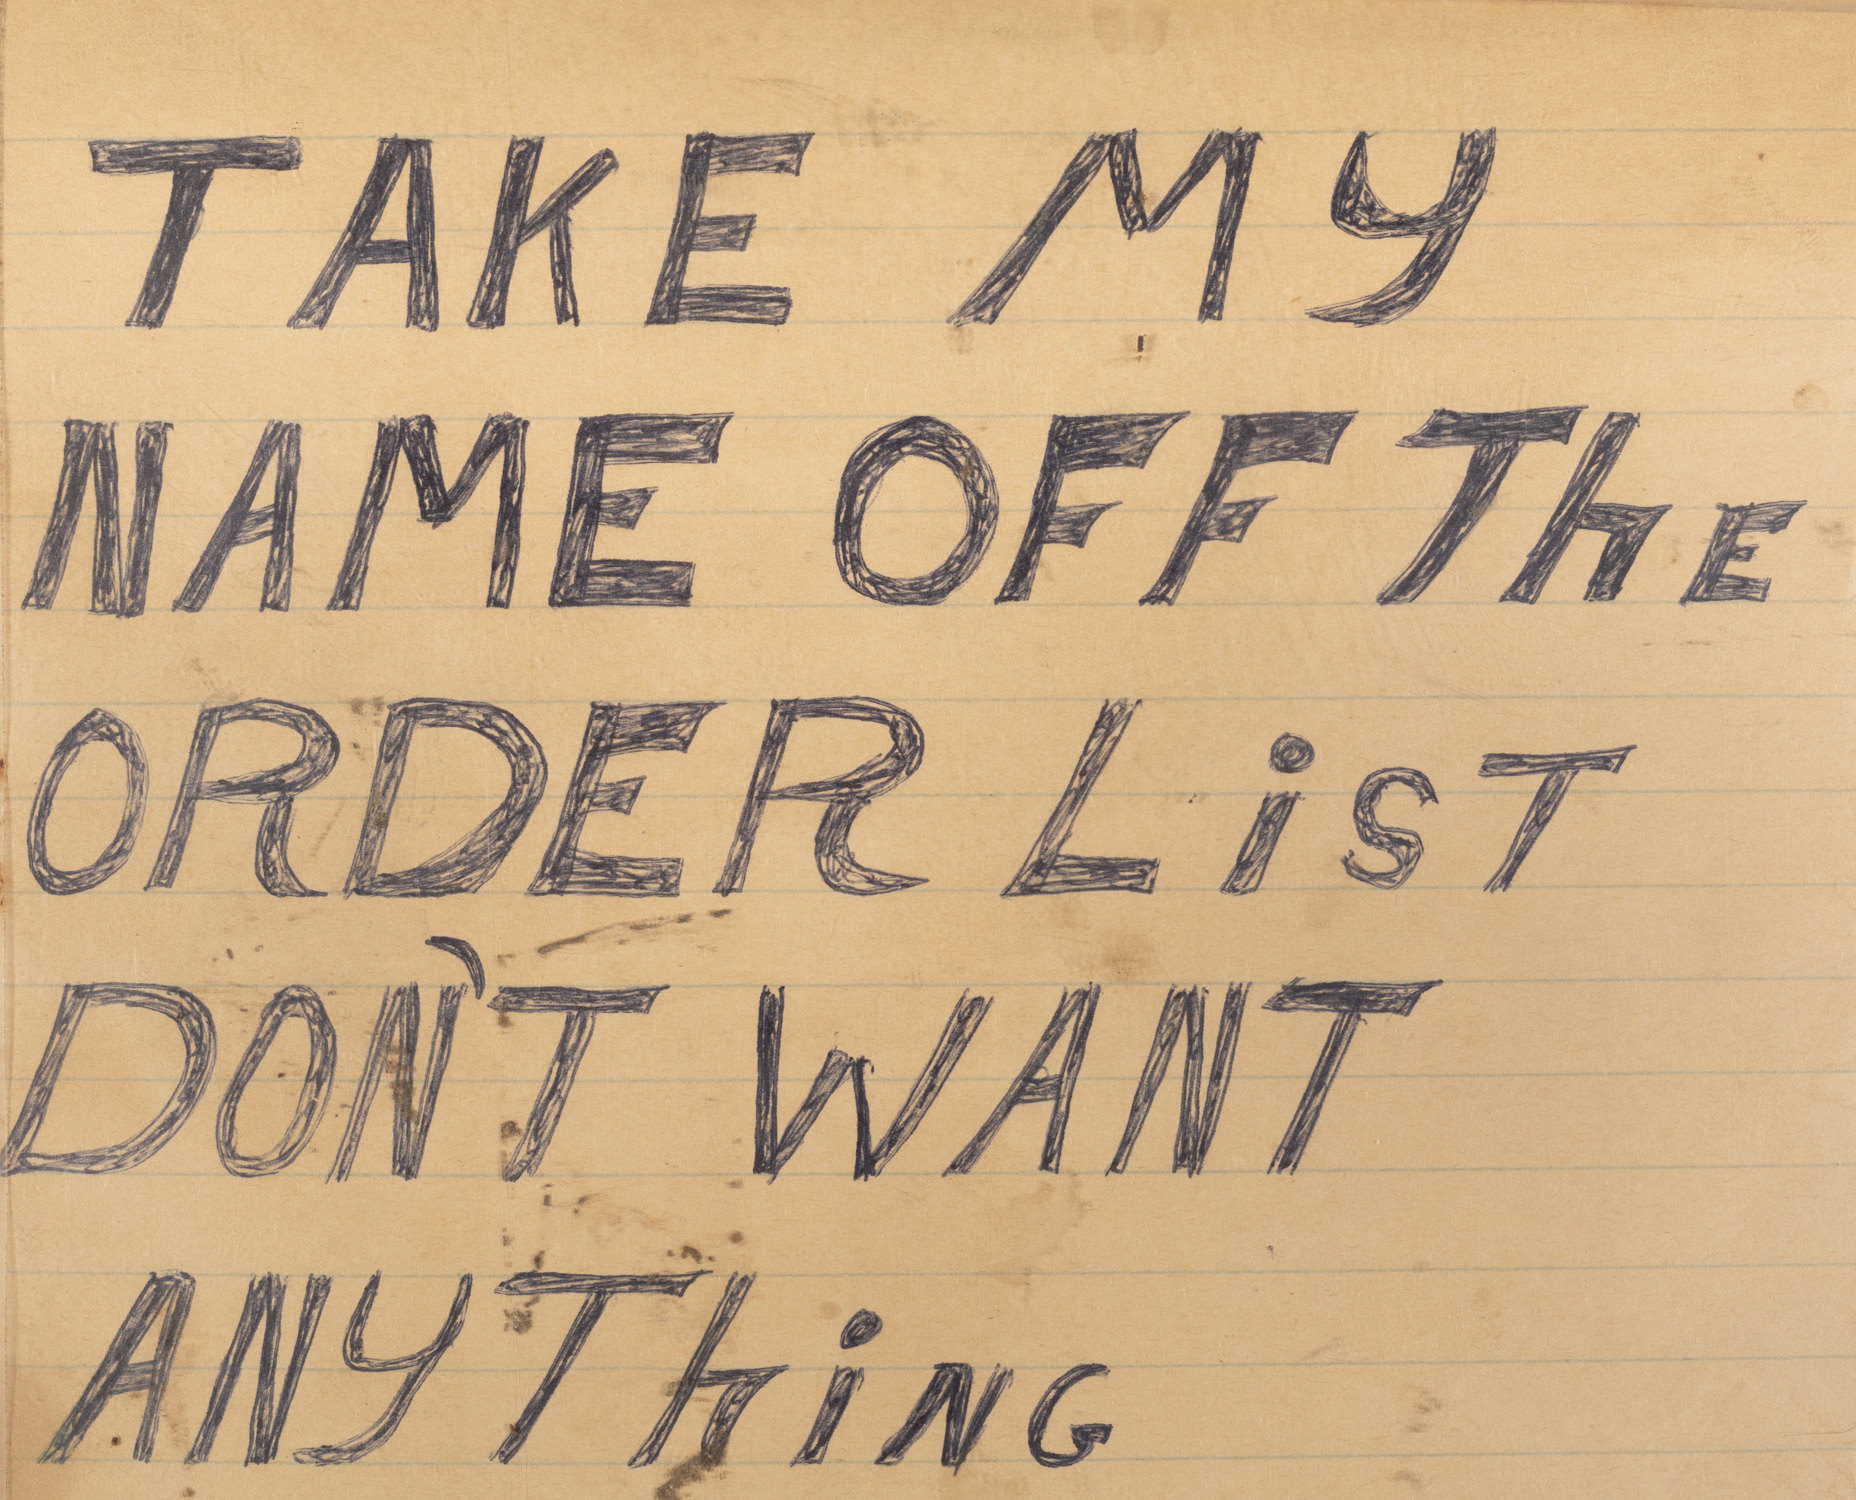 TAKE MY
NAME OFF ThE
ORDER LisT
DON'T WANT
ANYThiNG